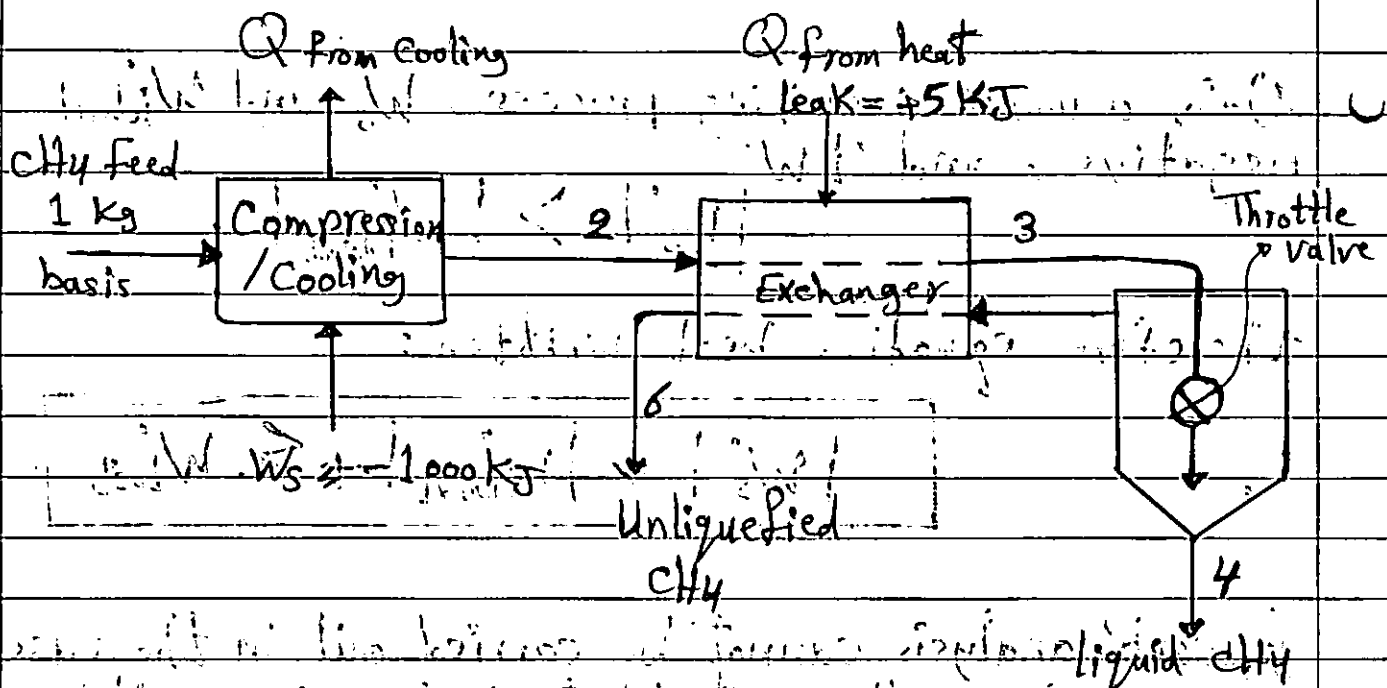 Q from cooling
Q from heat
leak = +5 KJ
CH4 feed
1 kg
basis
Compression
/ Cooling
2
Exchanger
3
Throttle
valve
6
Ws = -1000 KJ
Unliquefied
CH4
4
liquid CH4